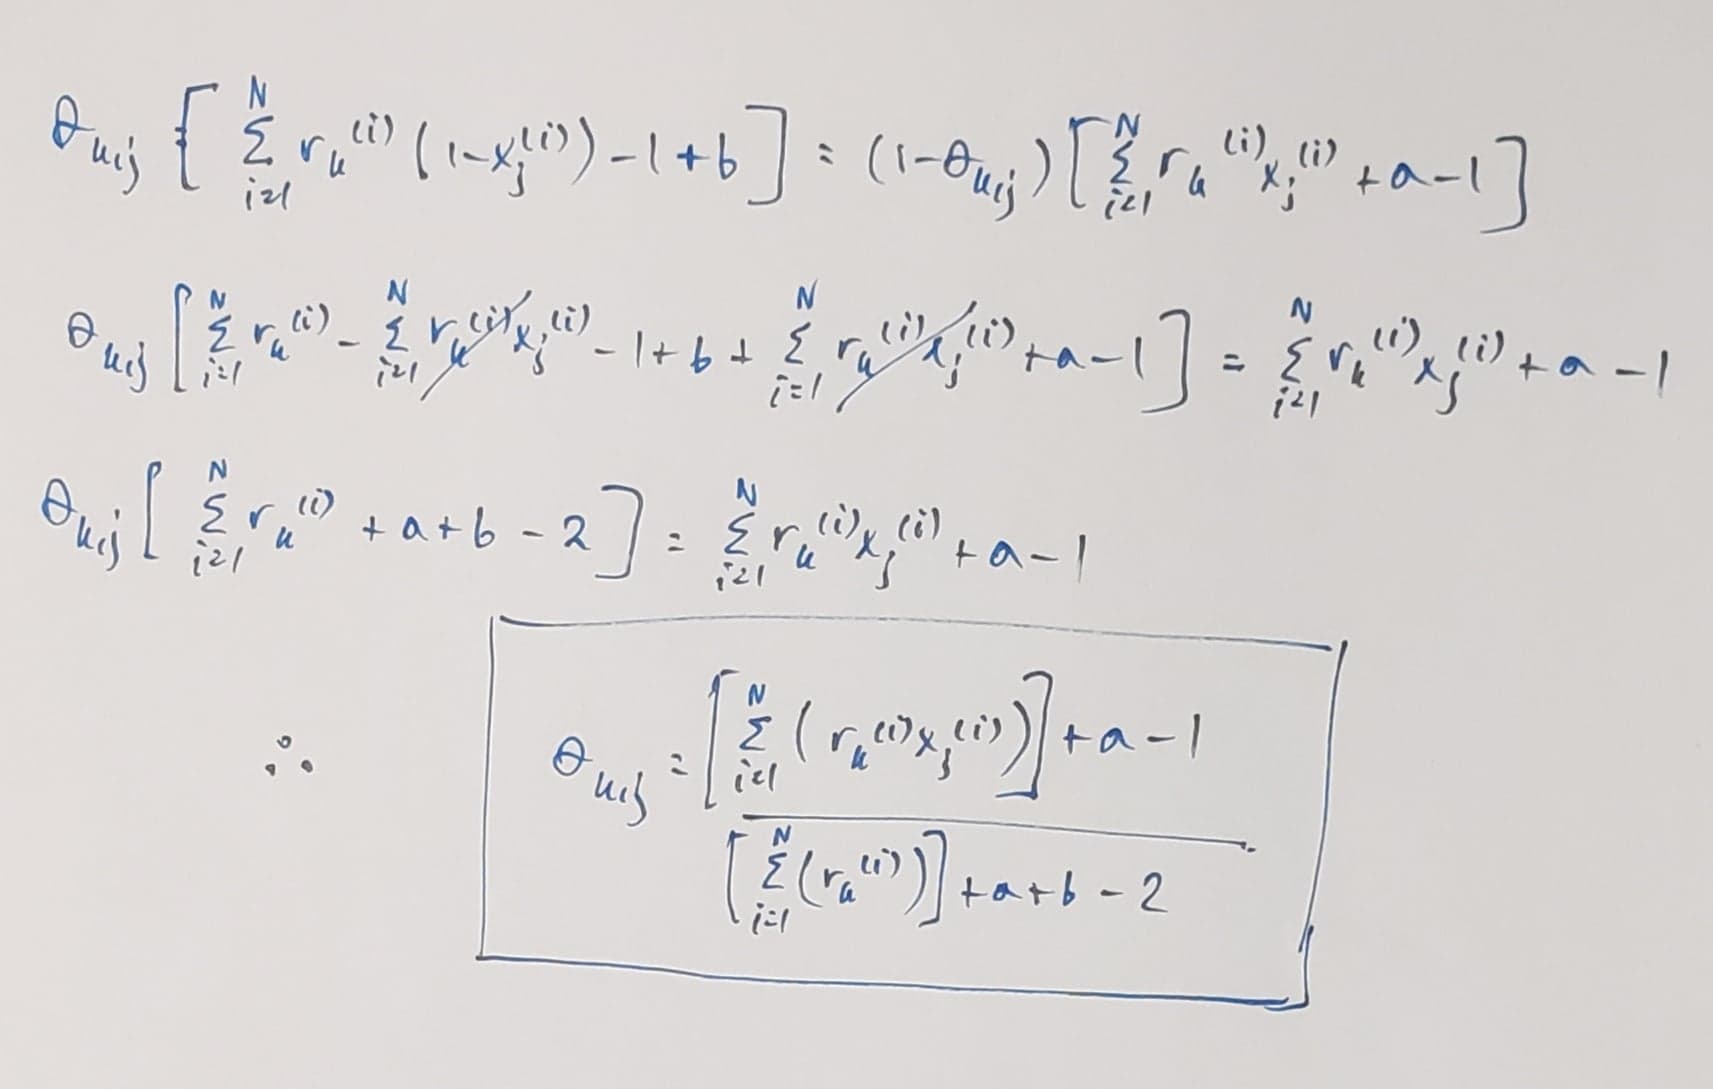 θ_{k,j} [ \sum_{i=1}^{N} r_k^{(i)} (1-x_j^{(i)}) -1 + b ] = (1-θ_{k,j}) [ \sum_{i=1}^{N} r_k^{(i)} x_j^{(i)} + a - 1 ]
θ_{k,j} [ \sum_{i=1}^{N} r_k^{(i)} - \sum_{i=1}^{N} r_k^{(i)} x_j^{(i)} - 1 + b + \sum_{i=1}^{N} r_k^{(i)} x_j^{(i)} + a - 1 ] = \sum_{i=1}^{N} r_k^{(i)} x_j^{(i)} + a - 1
θ_{k,j} [ \sum_{i=1}^{N} r_k^{(i)} + a + b - 2 ] = \sum_{i=1}^{N} r_k^{(i)} x_j^{(i)} + a - 1
∴ θ_{k,j} = \frac{[ \sum_{i=1}^{N} ( r_k^{(i)} x_j^{(i)} ) ] + a - 1}{[ \sum_{i=1}^{N} ( r_k^{(i)} ) ] + a + b - 2}